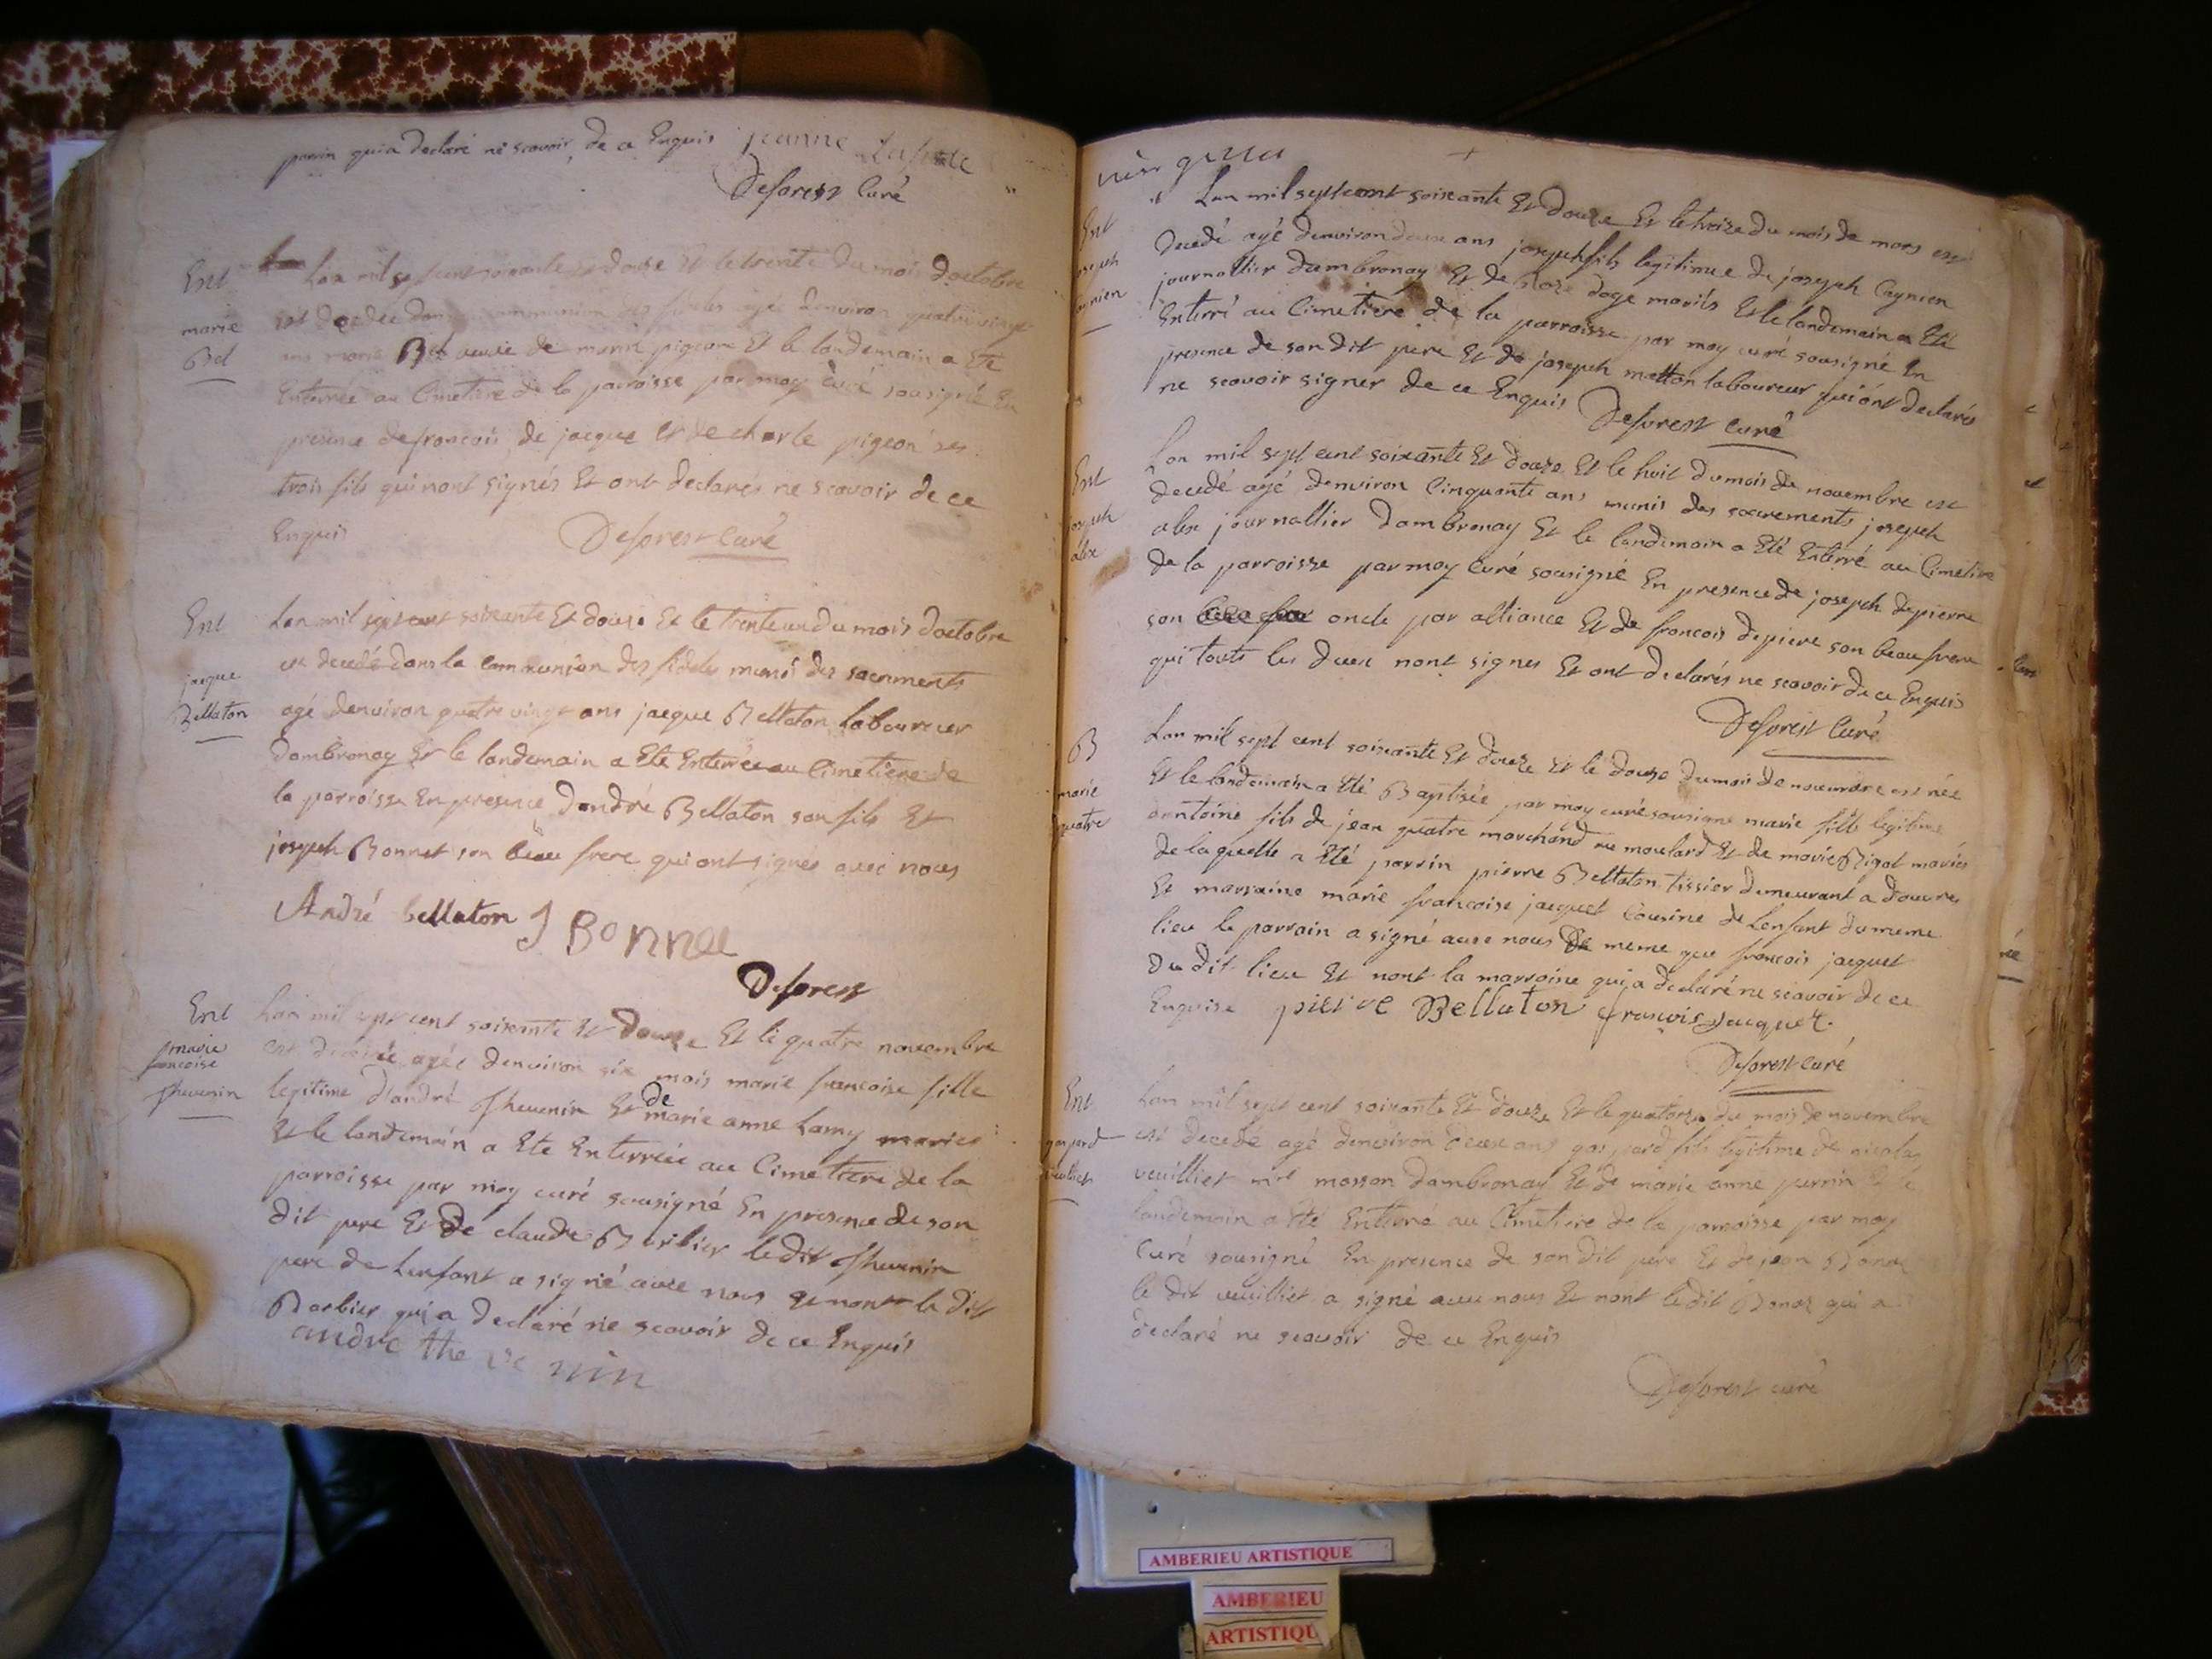 parrin qui a declaré ne scavoir de ce Enquis jeanne
Deforest Curé
Ent
marie
Bel
Lan mil sept cent soixante Et douze Et le trente du mois doctobre
est decedee dans la communion des fideles agee denviron quatre vingt
ans marie Bel veuve de pigeon Et le landemain a Ete
Enterrée au Cimetiere de la parroisse par moy curé sousigné En
presence de francois, de jacque Et de charle pigeon ses
trois fils qui nont signés Et ont declarés ne scavoir de ce
Enquis
Deforest Curé
Ent
jacque
Bellaton
Lan mil sept cent soixante Et douze Et le trente un du mois doctobre
est decedé dans la communion des fideles muni des sacrements
agé denviron quatre vingt ans jacque Bellaton laboureur
dambronay Et le landemain a Ete Enterré au Cimetiere de
la parroisse En presence dandré Bellaton son fils Et
joseph Bonnet son beau frere qui ont signés avec nous
André bellaton J Bonnet
Deforest
Ent
marie
francoise
thevenin
Lan mil sept cent soixante Et douze Et le quatre novembre
est decedée agée denviron six mois marie francoise fille
legitime d'andré thevenin Et de marie anne Lamy mariés
Et le landemain a Ete Enterrée au Cimetiere de la
parroisse par moy curé sousigné En presence de son
dit pere Et de claude Barbier le dit thevenin
pere de Lenfant a signé avec nous Et nont le dit
Barbier qui a declaré ne scavoir de ce Enquis
andre the ve nin
Ent
joseph
Lan mil sept cent soixante Et douze Et le treize du mois de mars est
decedé agé denviron deux ans joseph fils legitime de joseph Cagnien
journallier dambronay Et de doge mariés Et le landemain a Eté
Enterré au Cimetiere de la parroisse par moy curé sousigné En
presence de son dit pere Et de joseph matton laboureur qui ont declarés
ne scavoir signer de ce Enquis
Deforest Curé
Ent
joseph
alix
Lan mil sept cent soixante Et douze Et le huit du mois de novembre est
decedé agé denviron Cinquante ans munis des sacrements joseph
alix journallier dambronay Et le landemain a Eté Enterré au Cimetiere
de la parroisse par moy Curé sousigné En presence de joseph depierre
son oncle par alliance Et de francois depiere son beau frere
qui touts les deux nont signes Et ont declarés ne scavoir de ce Enquis
Deforest Curé
B
marie
quatre
Lan mil sept cent soixante Et douze Et le douze du mois de novembre est née
Et le landemain a Eté Baptisée par moy curé sousigné marie fille legitime
dantoine fils de jean quatre marchand au moulard Et de marie Rigot mariés
de laquelle a Eté parrin pierre Bellaton tissier demeurant a douvres
Et marraine marie francoise jacquet Cousine de Lenfant du meme
lieu le parrain a signé avec nous de meme que francois jacquet
du dit lieu Et nont la marraine qui a declaré ne scavoir de ce
Enquise pierre Bellaton francois Jacquet
Deforest curé
Ent
gaspard
veuilliet
Lan mil sept cent soixante Et douze Et le quatorze du mois de novembre
est decedé agé denviron deux ans gaspard fils legitime de nicolas
veuilliet mtre masson dambronay Et de marie anne perrin Et le
landemain a Eté Enterré au Cimetiere de la parroisse par moy
Curé sousigné En presence de son dit pere Et de jean Donoz
le dit veuilliet a signé avec nous Et nont le dit Donoz qui a
declaré ne scavoir de ce Enquis
Deforest curé
AMBERIEU ARTISTIQUE
AMBERIEU
ARTISTIQU